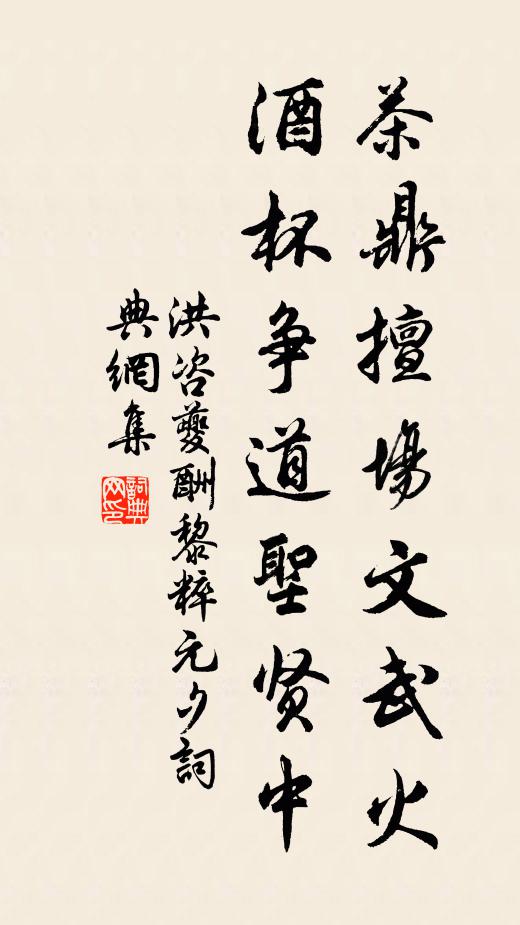 茶鼎擅場文武火
酒杯争道聖贤中
洪咨夔酬黎粹元夕詞
典網集
詞典
网印